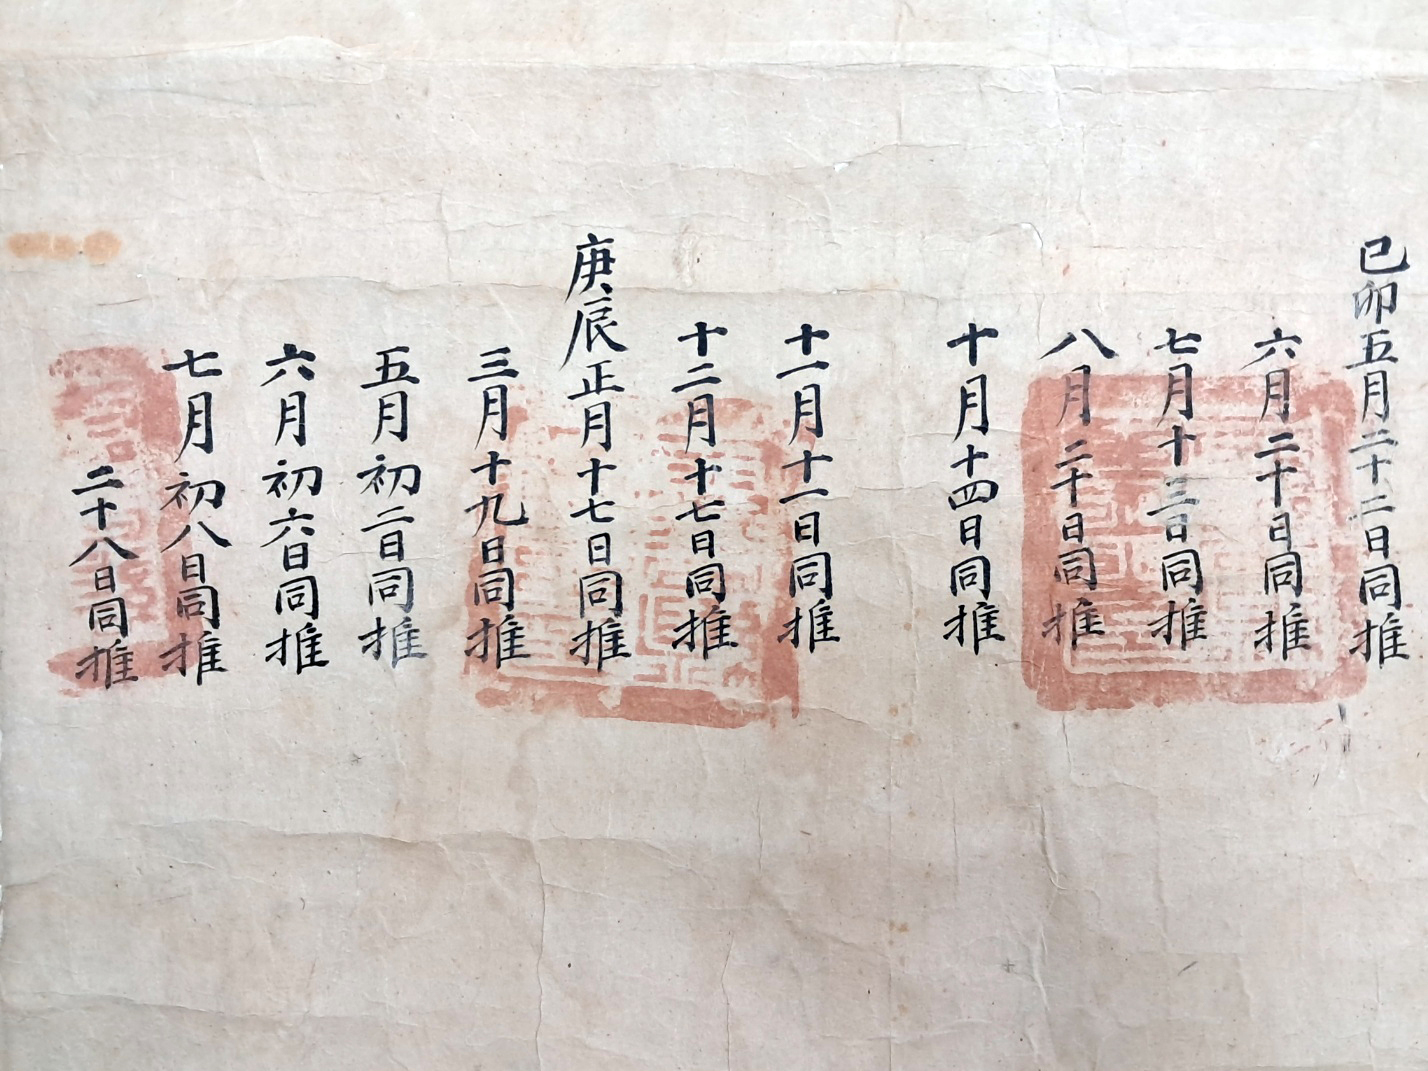 己卯五月二十二日同推
六月二十日同推
七月十三日同推
八月二十日同推
十月十四日同推
十一月十一日同推
十二月十七日同推
庚辰正月十七日同推
三月十九日同推
五月初二日同推
六月初六日同推
七月初八日同推
二十八日同推